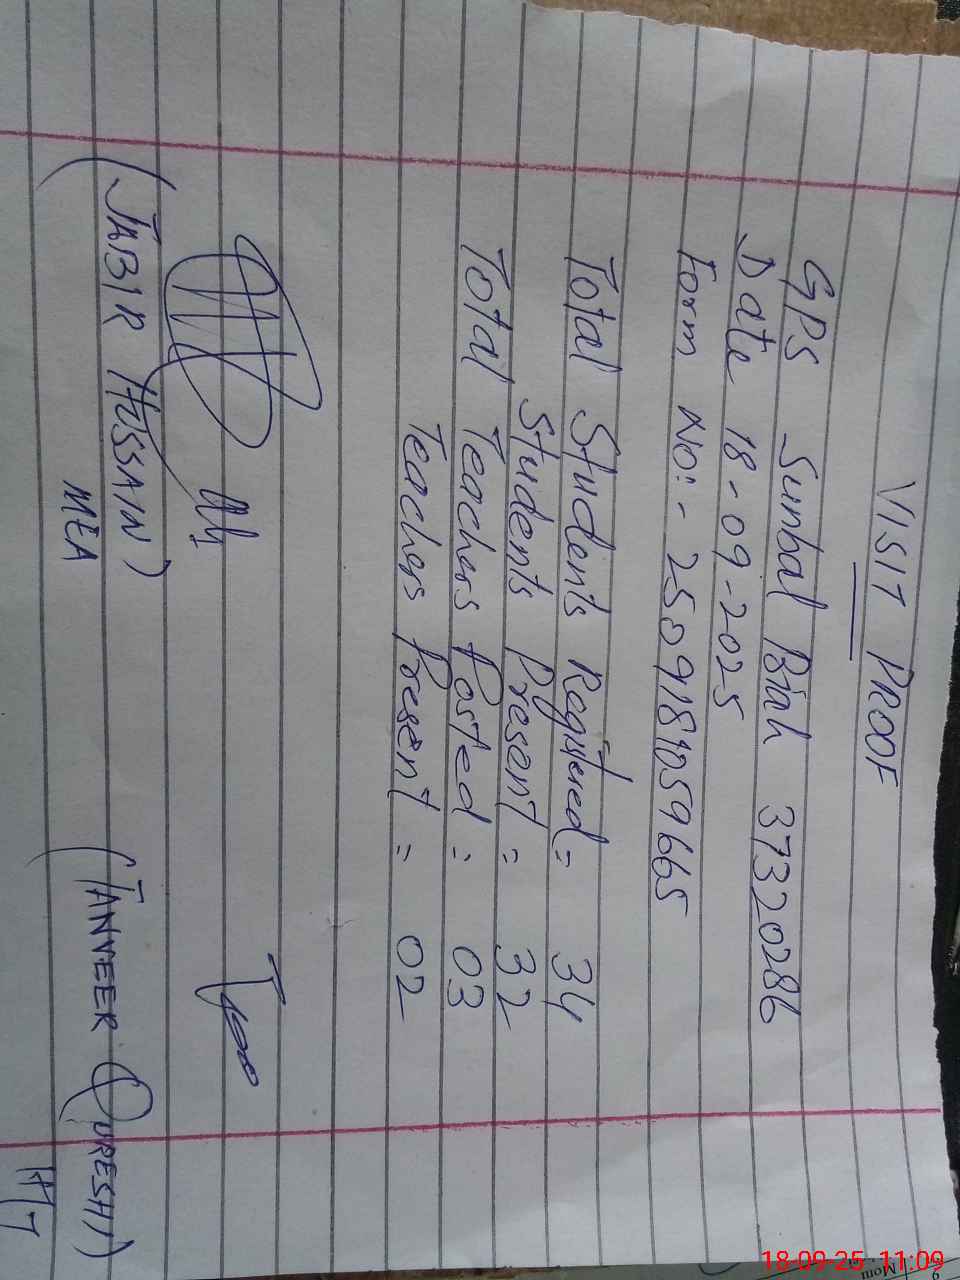 VISIT PROOF
GPS Sunbal Biah 37320286
Date 18-09-2025
Form No:- 2509181059665
Total Students Registered = 34
Students Present = 32
Total Teachers Posted = 03
Teachers Present = 02
(JABIR HUSSAIN)
MEA
(TANVEER QURESHI)
HT
18-09-25 11:09